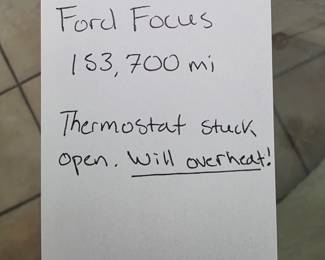 Ford Focus
153,700 mi
Thermostat stuck
open. Will overheat!